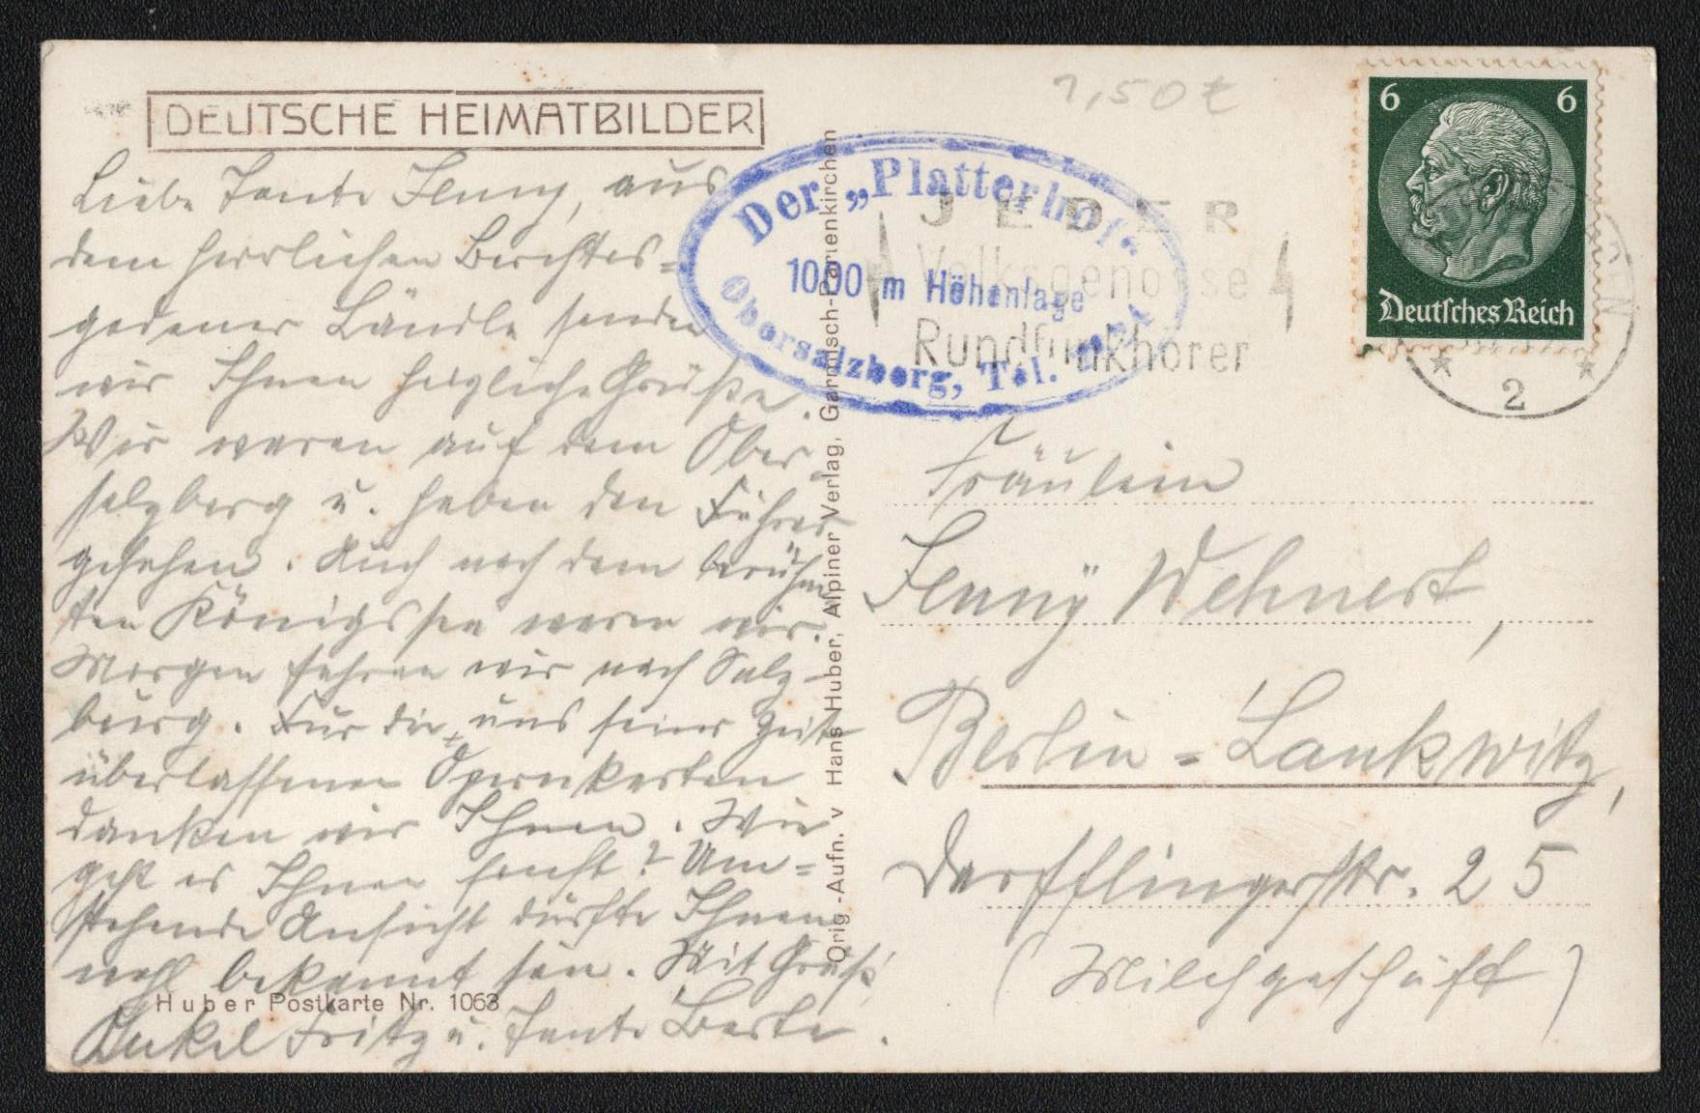 DEUTSCHE HEIMATBILDER
1,50 €
6 6
Deutsches Reich
Der „Platterhof“
1000 m Höhenlage
Obersalzberg, Tel.
JEDER
Volksgenosse
Rundfunkhörer
2
Liebe Tante Jenny, aus
dem herrlichen Berchtes=
gadener Ländle senden
wir Ihnen herzliche Grüße.
Wir waren auf dem Ober
salzberg u. haben den Führer
gesehen. Auch nach dem berühm
ten Königssee waren wir.
Morgen fahren wir nach Salz-
burg. Für die uns seiner Zeit
überlassenen Opernkarten
danken wir Ihnen. Wie
geht es Ihnen sonst? Um=
stehende Ansicht dürfte Ihnen
wohl bekannt sein. Mit Gruß
Onkel Fritz u. Tante Berta.
Huber Postkarte Nr. 1063
Orig.-Aufn. v Hans Huber, Alpiner Verlag, Garmisch-Partenkirchen
Fräulein
Jenny Wehnert,
Berlin=Lankwitz,
Derfflingerstr. 25
(Milchgeschäft)